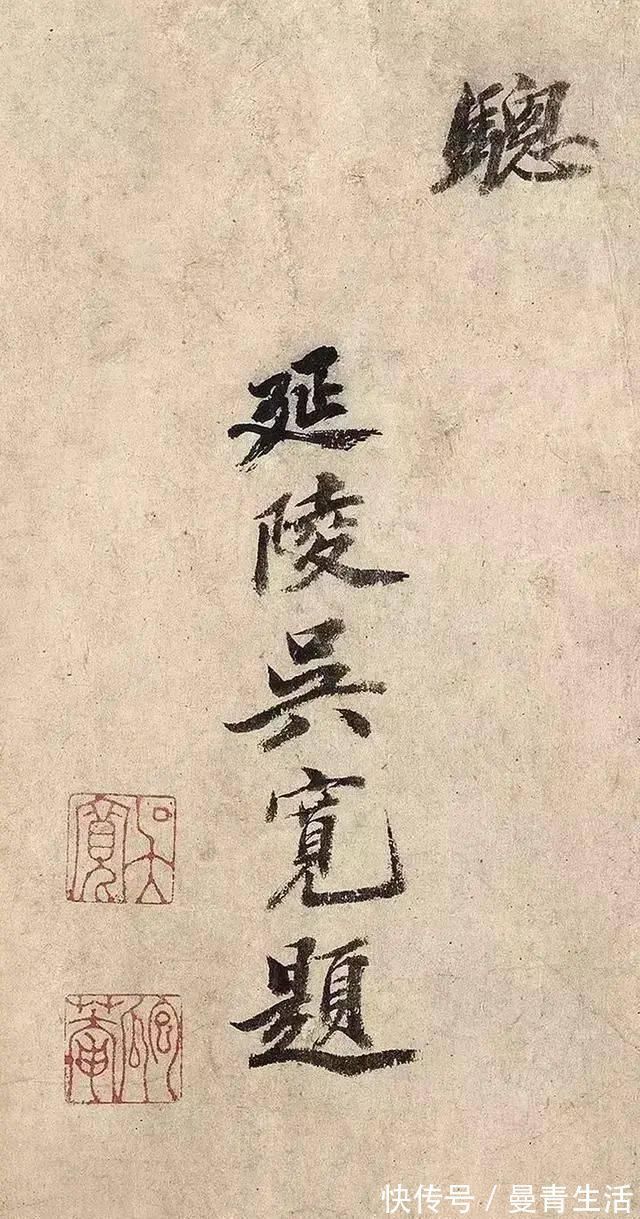 驄
延陵吳寬題
吳寬
匏菴
快传号／曼青生活